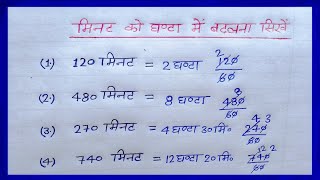 मिनट को घण्टा में बदलना सिखें
(1.) 120 मिनट = 2 घण्टा 2 120/60
(2.) 480 मिनट = 8 घण्टा 8 480/60
(3.) 270 मिनट = 4 घण्टा 30 मि० 4 3 240/60
(4.) 740 मिनट = 12 घण्टा 20 मि० 740/60